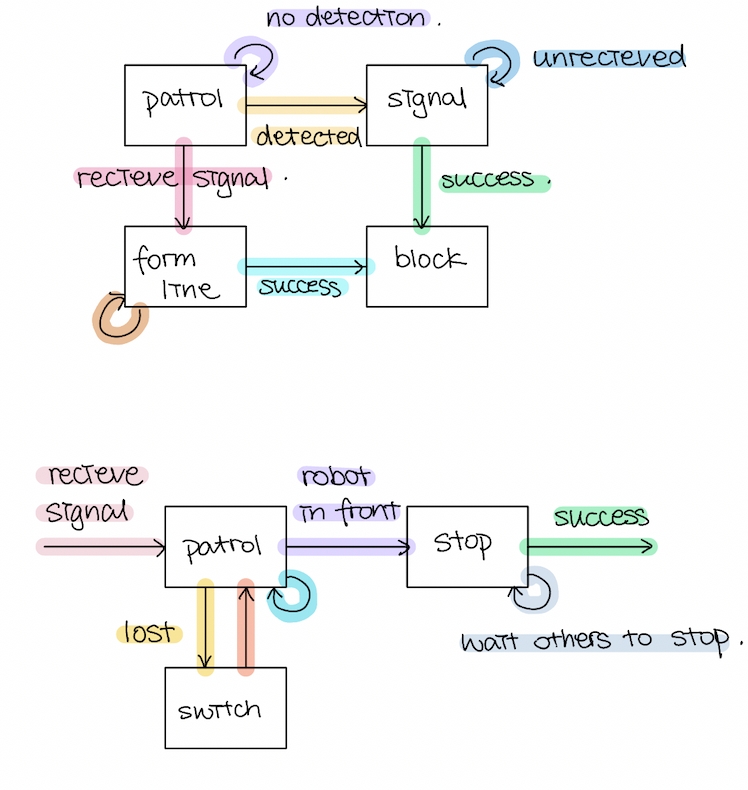 no detection.
patrol
signal
unrecieved
detected
recieve signal.
success.
form
line
success
block
recieve
signal
robot
in front
patrol
stop
success
lost
wait others to stop.
switch